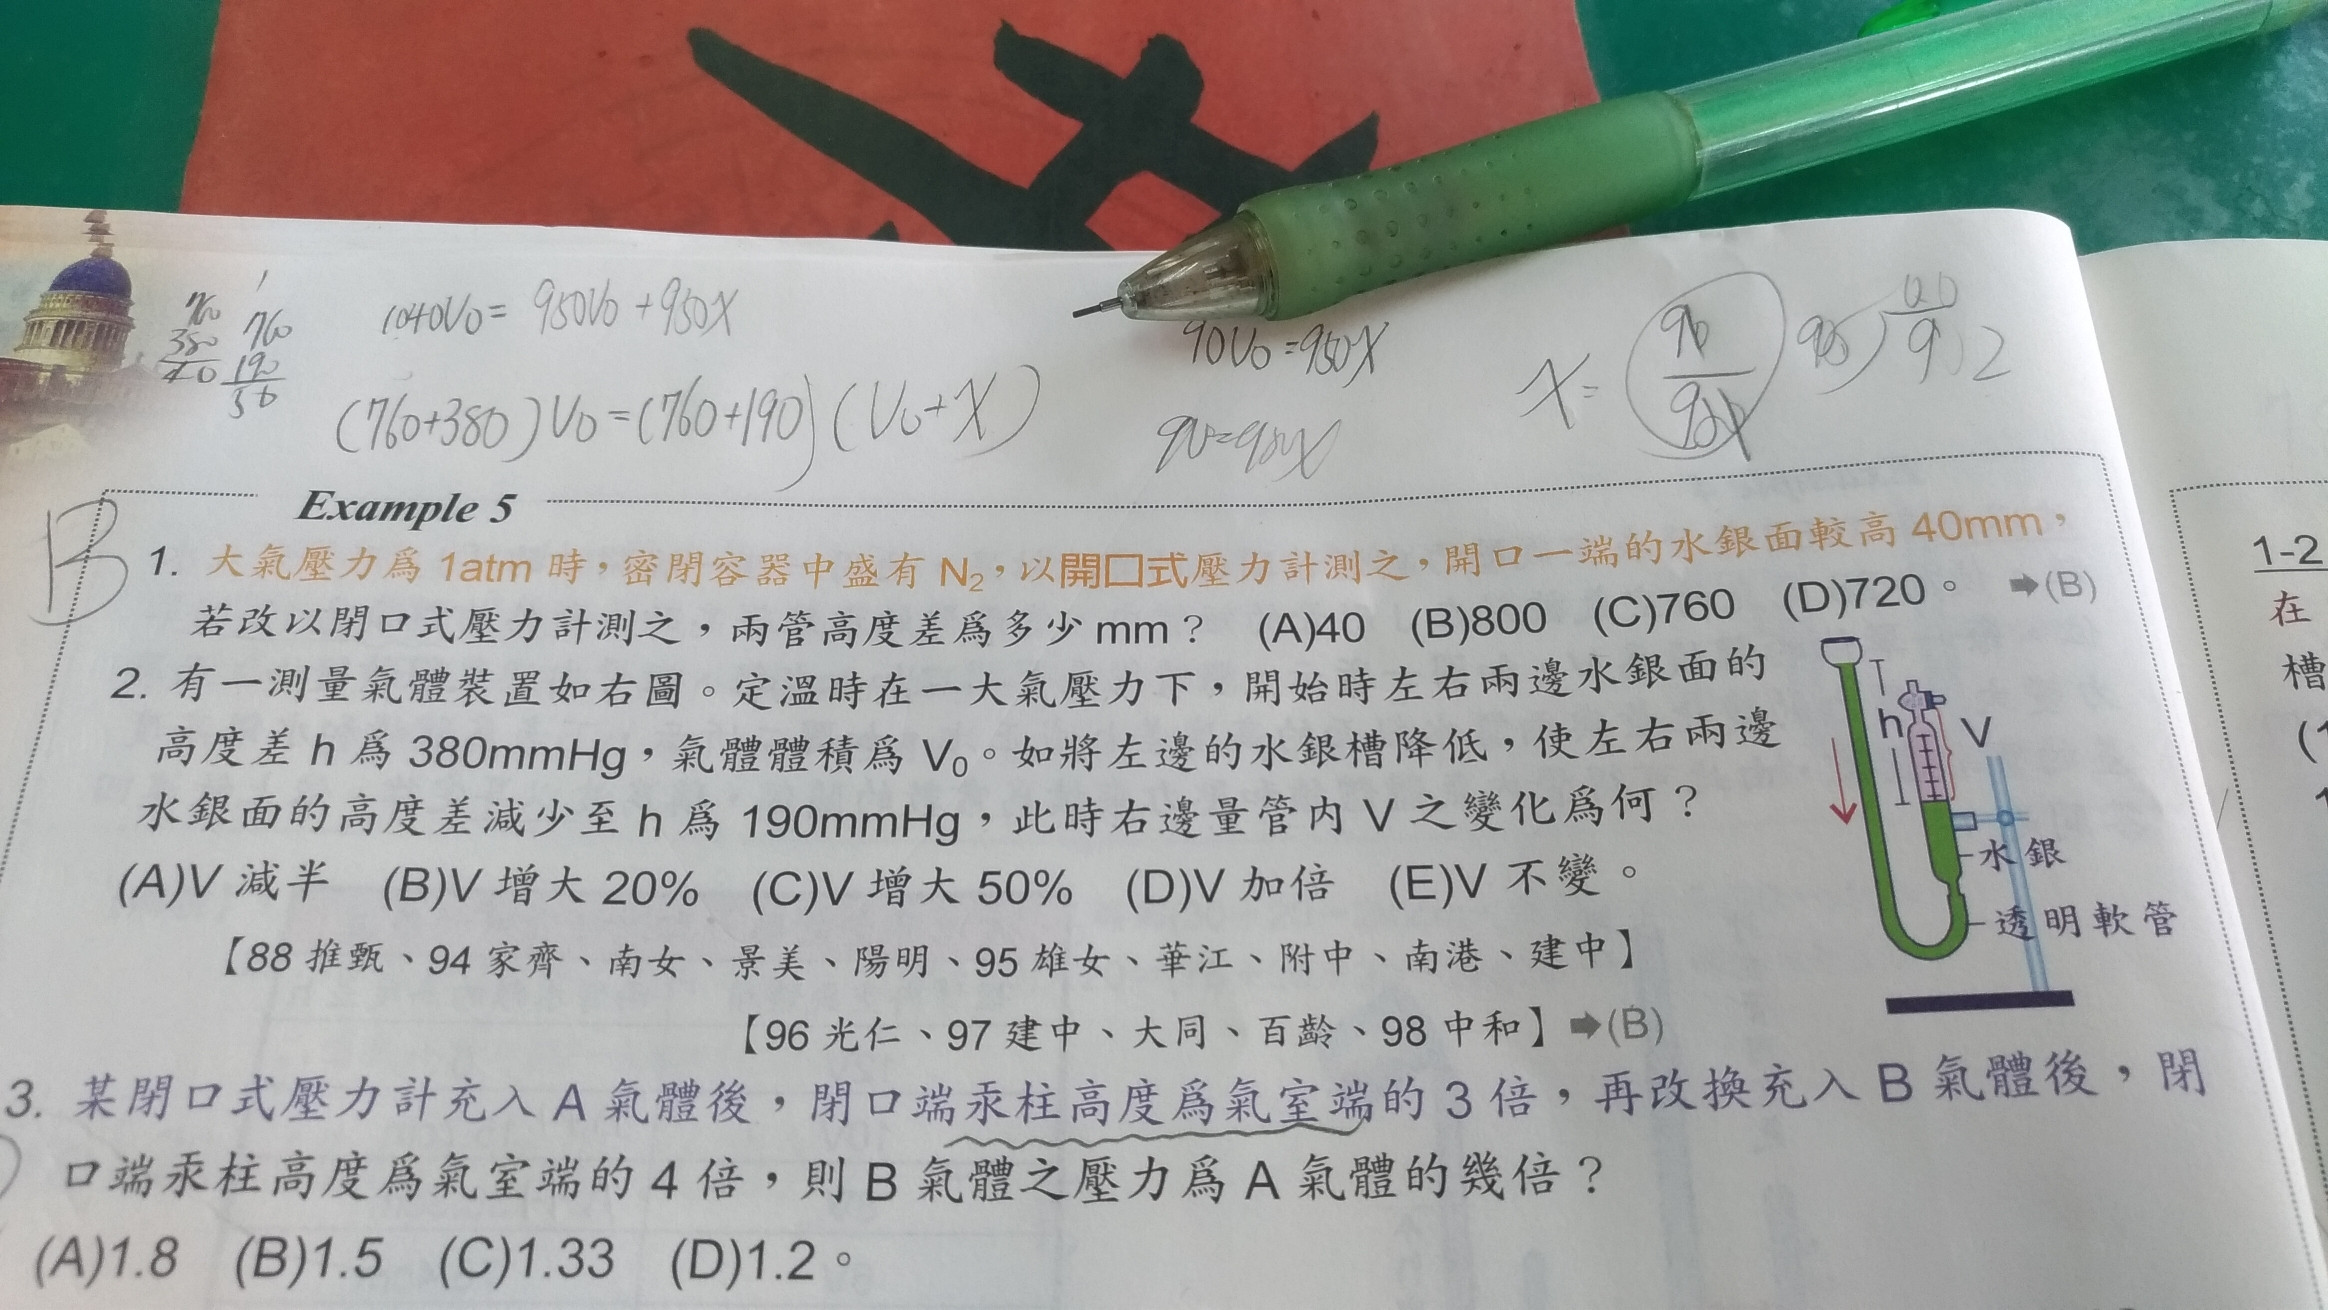 760
380
40
1
760
190
50
1040V0 = 950V0 + 950X
(760+380)V0 = (760+190)(V0+X)
90V0 = 950X
X =
B
Example 5
1. 大氣壓力爲 1atm 時，密閉容器中盛有 N₂，以開口式壓力計測之，開口一端的水銀面較高 40mm，
若改以閉口式壓力計測之，兩管高度差爲多少 mm？ (A)40 (B)800 (C)760 (D)720。 ➡(B)
2. 有一測量氣體裝置如右圖。定溫時在一大氣壓力下，開始時左右兩邊水銀面的
高度差 h 爲 380mmHg，氣體體積爲 V₀。如將左邊的水銀槽降低，使左右兩邊
水銀面的高度差減少至 h 爲 190mmHg，此時右邊量管内 V 之變化爲何？
(A)V 減半 (B)V 增大 20% (C)V 增大 50% (D)V 加倍 (E)V 不變。
【88 推甄、94 家齊、南女、景美、陽明、95 雄女、華江、附中、南港、建中】
【96 光仁、97 建中、大同、百齡、98 中和】➡(B)
h
V
水銀
透明軟管
3. 某閉口式壓力計充入 A 氣體後，閉口端汞柱高度爲氣室端的 3 倍，再改換充入 B 氣體後，閉
口端汞柱高度爲氣室端的 4 倍，則 B 氣體之壓力爲 A 氣體的幾倍？
(A)1.8 (B)1.5 (C)1.33 (D)1.2。
1-2
在
槽
(1